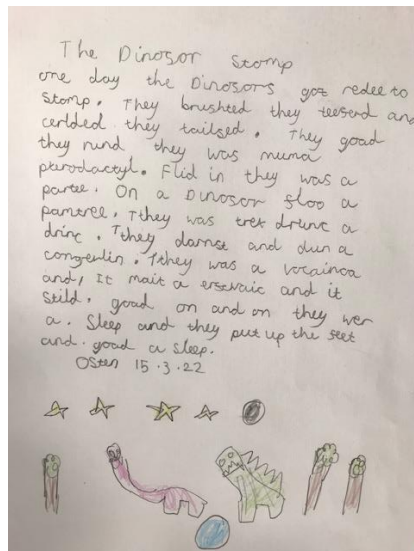 The Dinosor Stomp
one day the Dinosors got redee to
Stomp. They brushted they teeserd and
cerlded they tailsed. They goad
they rund they was muma
pterodactyl. Flid in they was a
partee. On a Dinosor floo a
pamtree. Tthey was trex drunc a
drinc. Tthey darnst and dun a
congerlin. Tthey was a vocainoa
and, It mait a erstvaic and it
Stild. goad on and on they wer
a. Sleep and they put up the feet
and. goad a sleep.
Osten 15.3.22